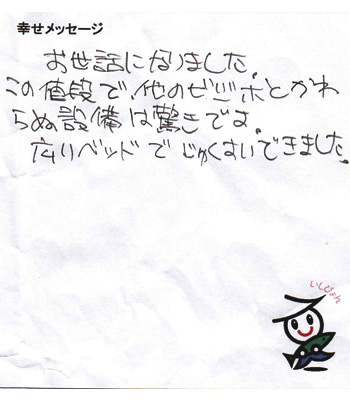 幸せメッセージ
お世話になりました。
この値段で、他のビジホとかわ
らぬ設備は驚きです。
広いベッドでじゅくすいできました。